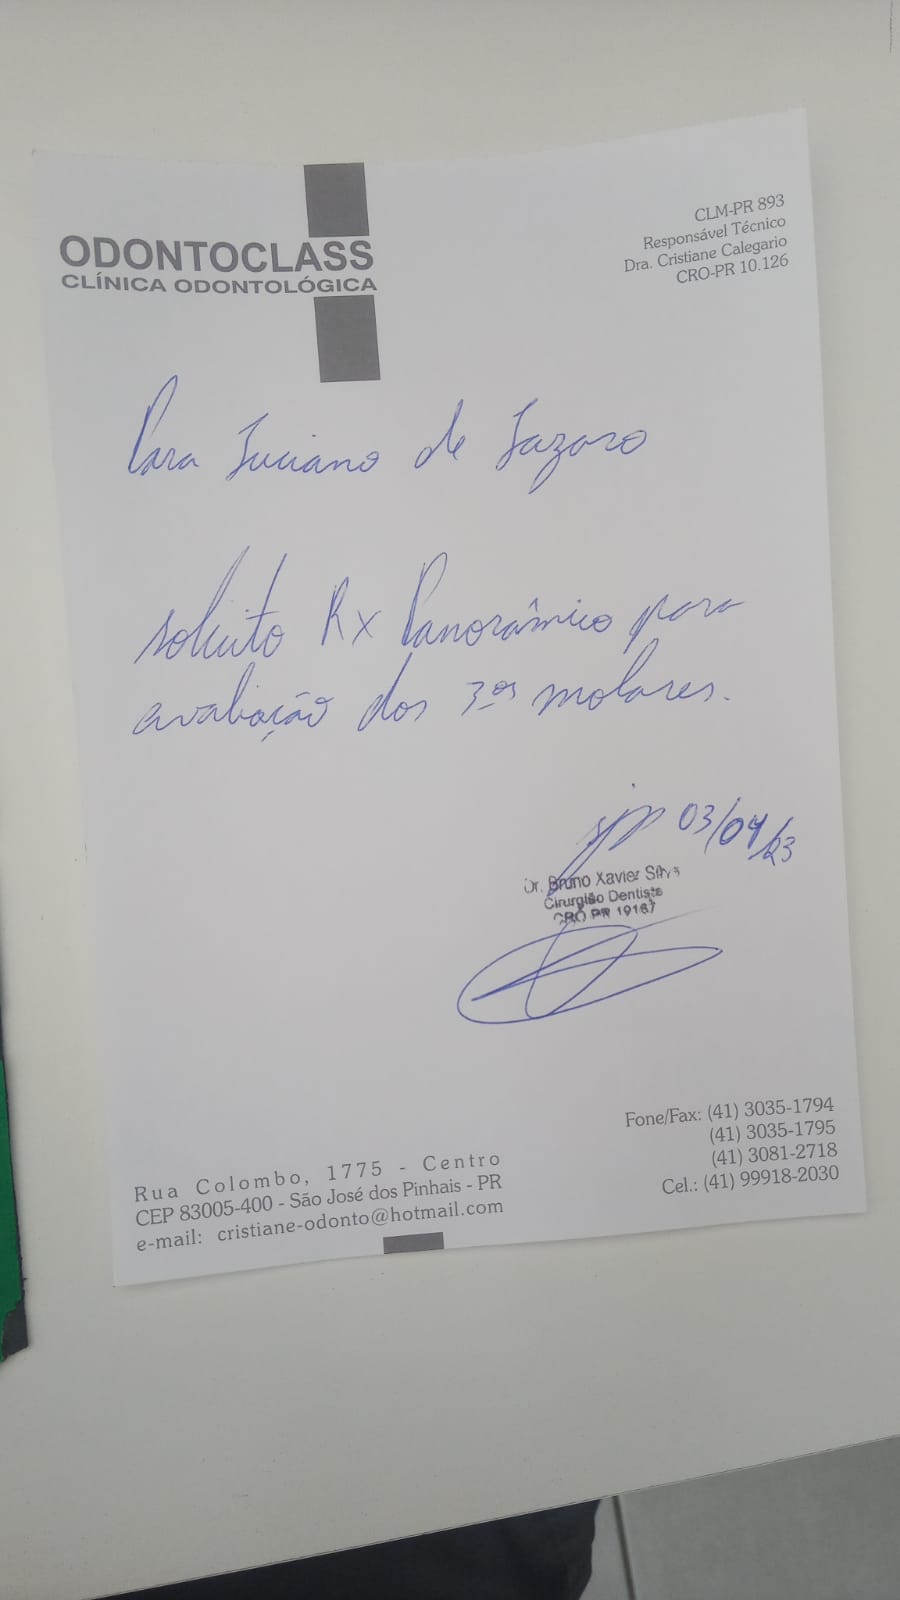 ODONTOCLASS
CLÍNICA ODONTOLÓGICA
CLM-PR 893
Responsável Técnico
Dra. Cristiane Calegario
CRO-PR 10.126
Para Luciano de Lazaro
solicito Rx Panorâmico para
avaliação dos 3ºs molares.
sjp 03/04/23
Dr. Bruno Xavier Silva
Cirurgião Dentista
CRO PR 19167
Rua Colombo, 1775 - Centro
CEP 83005-400 - São José dos Pinhais - PR
e-mail: cristiane-odonto@hotmail.com
Fone/Fax: (41) 3035-1794
(41) 3035-1795
(41) 3081-2718
Cel.: (41) 99918-2030